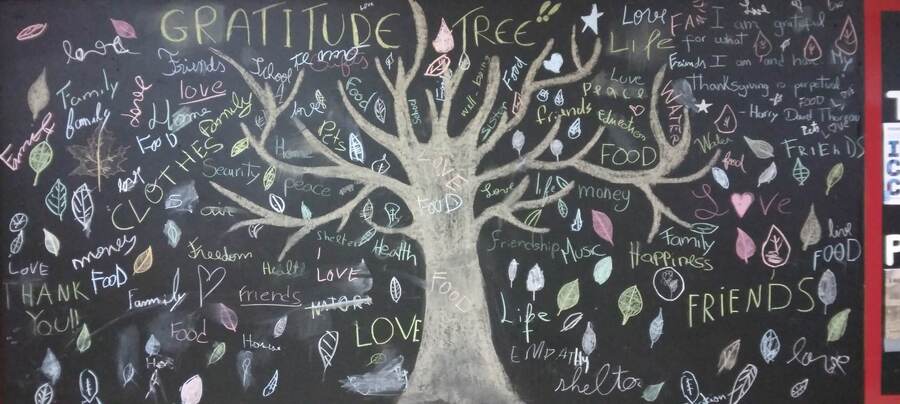 GRATITUDE TREE!!
Love
Life
I am grateful
for what I am and have. My
Thanksgiving is perpetual
Henry David Thoreau
Friends
love
School
Family
family
love
Home
Food
Family
CLOTHES
Security
Home
Pets
Food
well being
Sister
Food
Friends
Love
Peace
Education
WATER
FOOD
Water
food
FOOD LOVE
Pets LOVE
FRIENDS
love
peace
air
money
Food
LOVE
THANK
YOU!!
Freedom
Health
Shelter
I
LOVE
Health
Family
Friends
Food
House
LOVE
LOVE
FOOD
FOOD
Love
life
money
Love
Friendship
Music
Family
Happiness
love
FOOD
FRIENDS
Life
EMPATHY
shelter
love